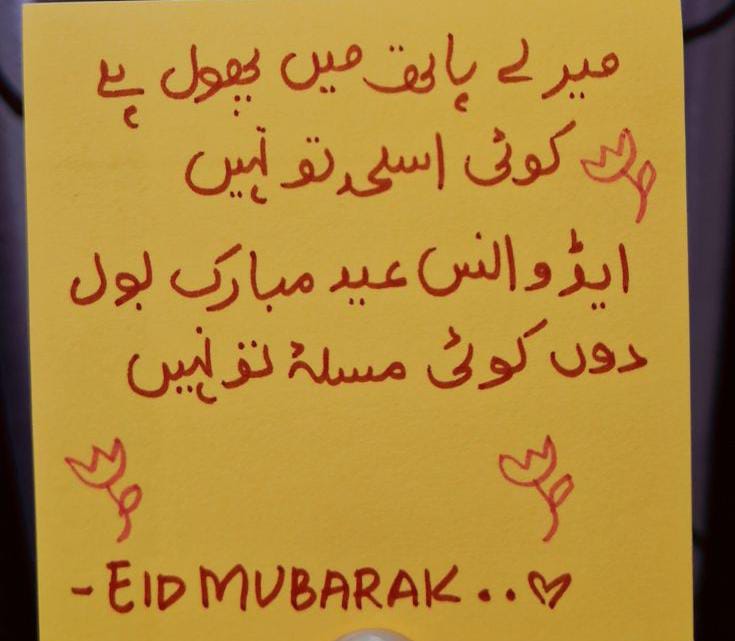 میرے ہاتھ میں پھول ہے
کوئی اسلحہ تو نہیں
ایڈوانس عید مبارک بول
دوں کوئی مسلۂ تو نہیں
-EID MUBARAK..♡